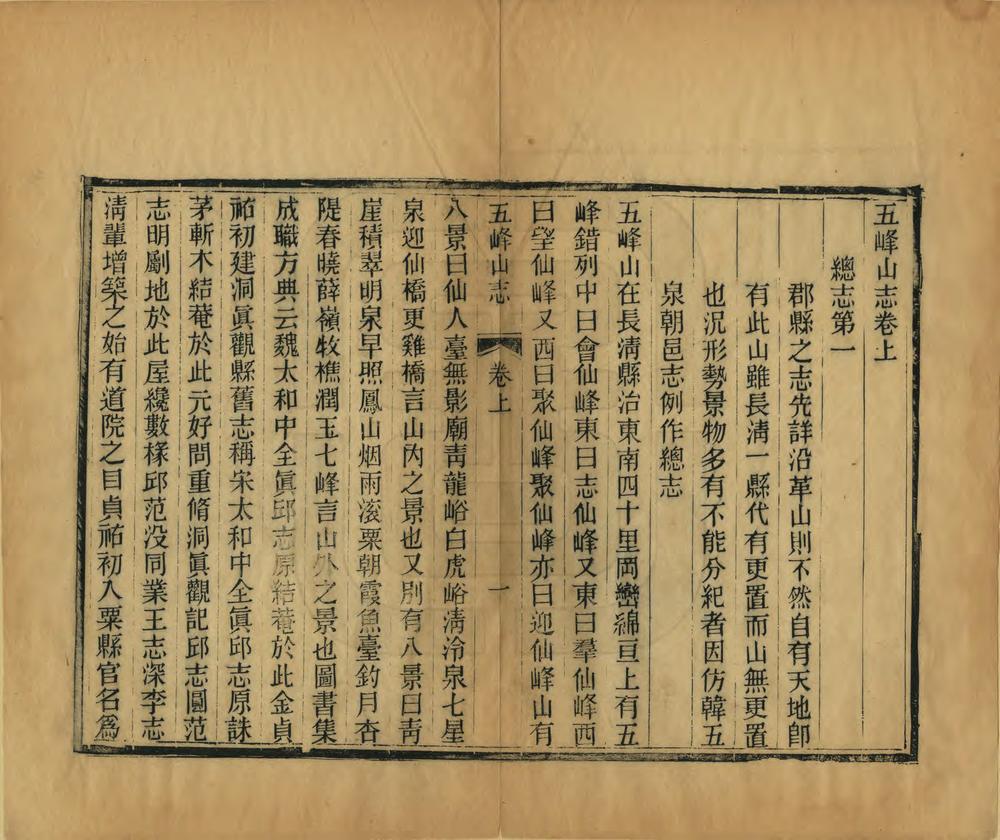 五峰山志卷上
總志第一
郡縣之志先詳沿革山則不然自有天地卽
有此山雖長淸一縣代有更置而山無更置
也況形勢景物多有不能分紀者因仿韓五
泉朝邑志例作總志
五峰山在長淸縣治東南四十里岡巒綿亘上有五
峰錯列中曰會仙峰東曰志仙峰又東曰羣仙峰西
曰望仙峰又西曰聚仙峰聚仙峰亦曰迎仙峰山有
五峰山志 卷上 一
八景曰仙人臺無影廟靑龍峪白虎峪淸泠泉七星
泉迎仙橋更雞橋言山內之景也又別有八景曰靑
崖積翠明泉早照鳳山烟雨滚粟朝霞魚臺釣月杏
隄春曉薛嶺牧樵潤玉七峰言山外之景也圖書集
成職方典云魏太和中全眞邱志原結菴於此金貞
祐初建洞眞觀縣舊志稱宋太和中全眞邱志原誅
茅斬木結菴於此元好問重脩洞眞觀記邱志圓范
志明劚地於此屋纔數椽邱范没同業王志深李志
淸輩增築之始有道院之目貞祐初入粟縣官名爲